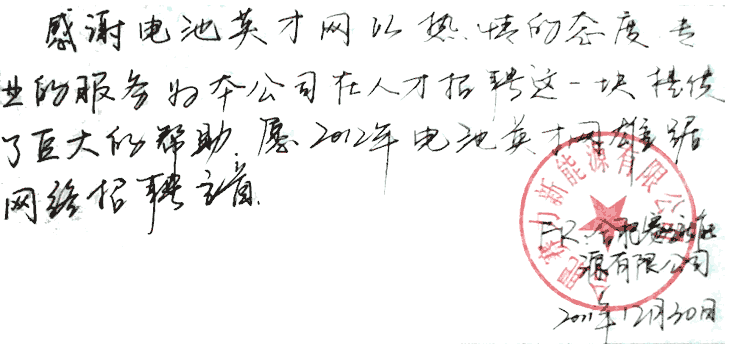 感谢电池英才网以热情的态度 专
业的服务为本公司在人才招聘这一块提供
了巨大的帮助.愿2012年电池英才网雄踞
网络招聘之首.
合肥赛力新能源有限公司
FR:合肥赛力新能
源有限公司
2011年12月30日